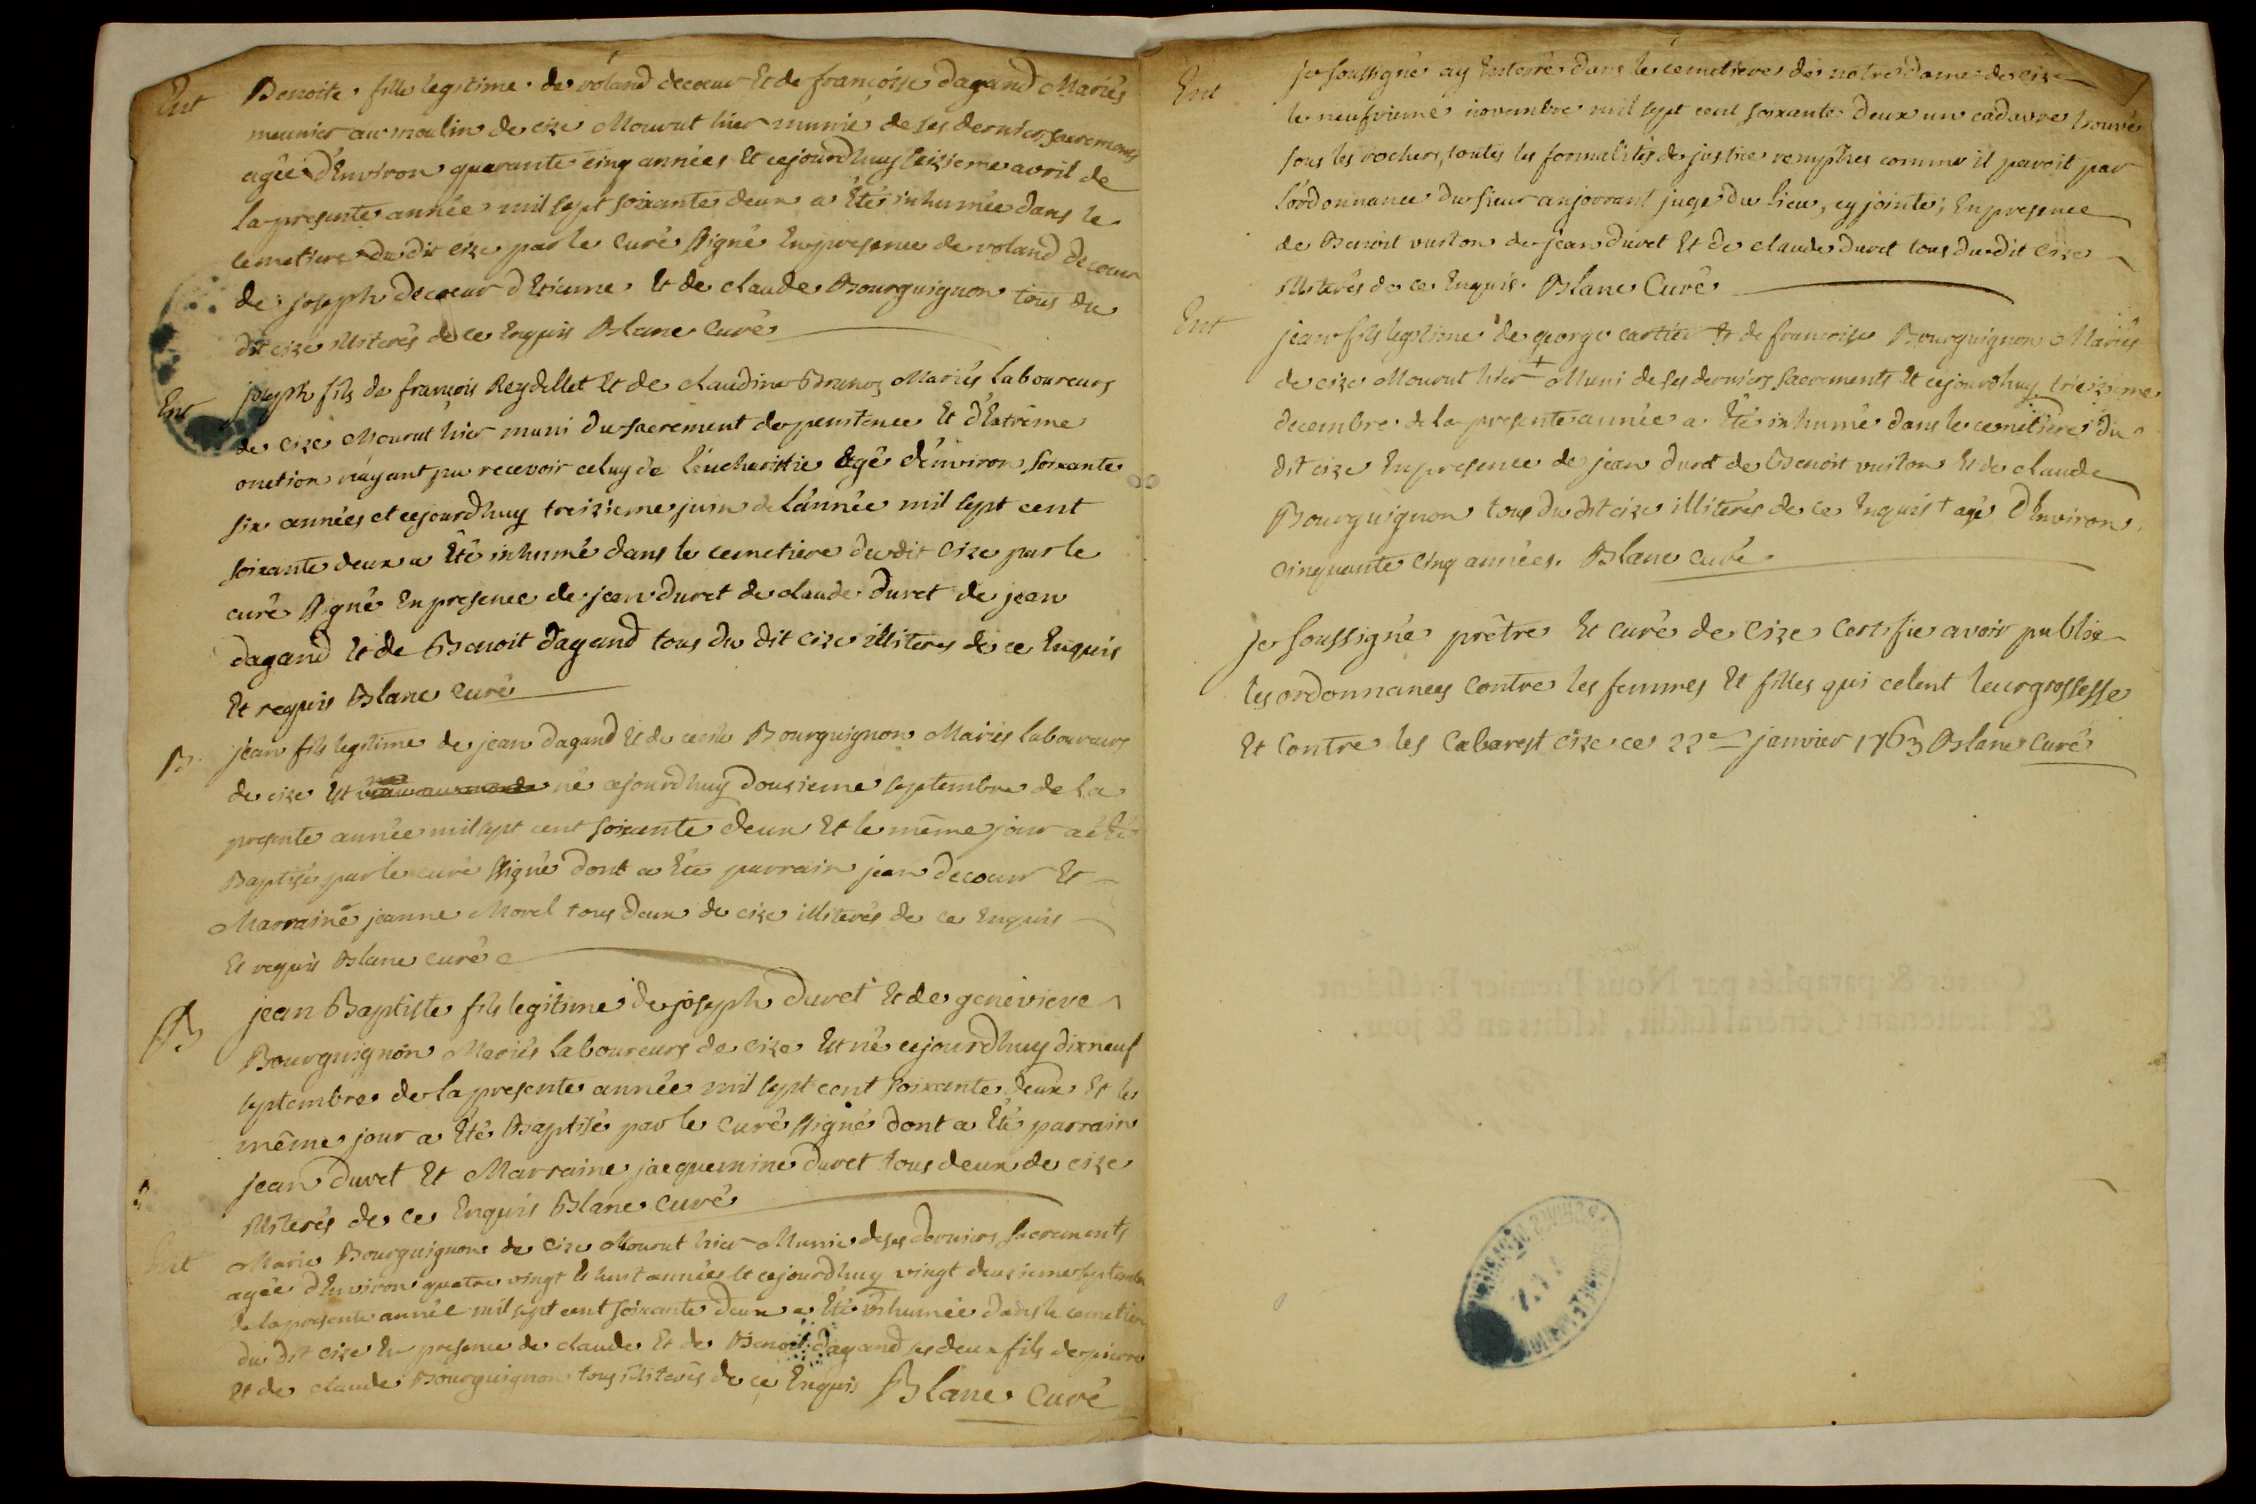 Ent
Benoite fille legitime de roland decoeur Et de françoise dagand Mariés
meunier au moulin de cize Mourut hier munie de ses derniers sacrements
agée d'Environ quarante cinq années Et cejourdhuy seizieme avril de
la presente année mil sept soixante deux a Eté inhumée dans le
cemetiere du dit cize par le Curé signé En presence de roland decoeur
de joseph decoeur d Etienne Et de claude Bourguignon tous du
dit cize illiterés de ce Enquis Blanc Curé
Ent
joseph fils de françois Reydellet Et de claudine Brunet Mariés laboureurs
de cize Mourut hier muni du sacrement de penitence Et d'Extrême
onction n'ayant pu recevoir celuy de l'eucharistie Agé d'environ soixante
six années et cejourdhuy treizieme juin de L'année mil sept cent
soixante deux a Eté inhumé dans le cemetiere du dit Cize par le
curé signé En presence de jean duret de claude duret de jean
dagand Et de Benoit dagand tous du dit cize illiterés de ce Enquis
Et requis Blanc Curé
B
jean fils legitime de jean dagand Et de cecile Bourguignon Mariés laboureurs
de cize Est né cejourdhuy dousieme septembre de La
presente année mil sept cent soixante deux Et le même jour a été
Baptisé par le curé signé dont a Eté parrain jean decoeur Et
Marraine jeanne Morel tous deux de cize illiterés de ce Enquis
Et requis Blanc curé
B
jean Baptiste fils legitime de joseph duret Et de genevieve
Bourguignon Mariés laboureurs de cize Est né cejourdhuy dixneuf
septembre de la presente année mil sept cent soixante deux Et le
même jour a Eté Baptisé par le Curé signé dont a Eté parrain
jean duret Et Marraine jacquemine duret tous deux de cize
illiterés de ce Enquis Blanc curé
Ent
Marie Bourguignon de Cize Mourut hier Munie de ses derniers sacrements
agée d'Environ quatre vingt Et huit années Et cejourdhuy vingt deusieme septembre
de la presente année mil sept cent soixante deux a Eté inhumée dans le cemetiere
du dit cize En presence de claude Et de Benoit dagand ses deux fils de pierre
Et de claude Bourguignon tous illiterés de ce Enquis Blanc Curé
Ent
je soussigné ay Enterré dans le cemetiere de notre dame de cize
le neufvieme novembre mil sept cent soixante deux un cadavre trouvé
sous les rochers, toutes les formalités de justice remplies comme il paroit par
l'ordonnance du sieur anjorrant juge du lieu, cy jointe, En presence
de Benoit vuiton de jean duret Et de claude duret tous du dit Cize
illiterés de ce Enquis. Blanc Curé
Ent
jean fils legitime de george cartier Et de francoise Bourguignon Mariés
de cize Mourut hier + Muni de ses derniers sacrements Et cejourdhuy treizieme
decembre de la presente année a Eté inhumé dans le cemetiere du
dit cize En presence de jean duret de Benoit vuiton Et de claude
Bourguignon tous du dit cize illiterés de ce Enquis + agé d'Environ
cinquante Cinq années. Blanc curé
je soussigné prêtre Et curé de Cize Certifie avoir publié
les ordonnances Contre les femmes Et filles qui celent leur grossesse
Et Contre les Cabarest Cize ce 22e janvier 1763 Blanc Curé